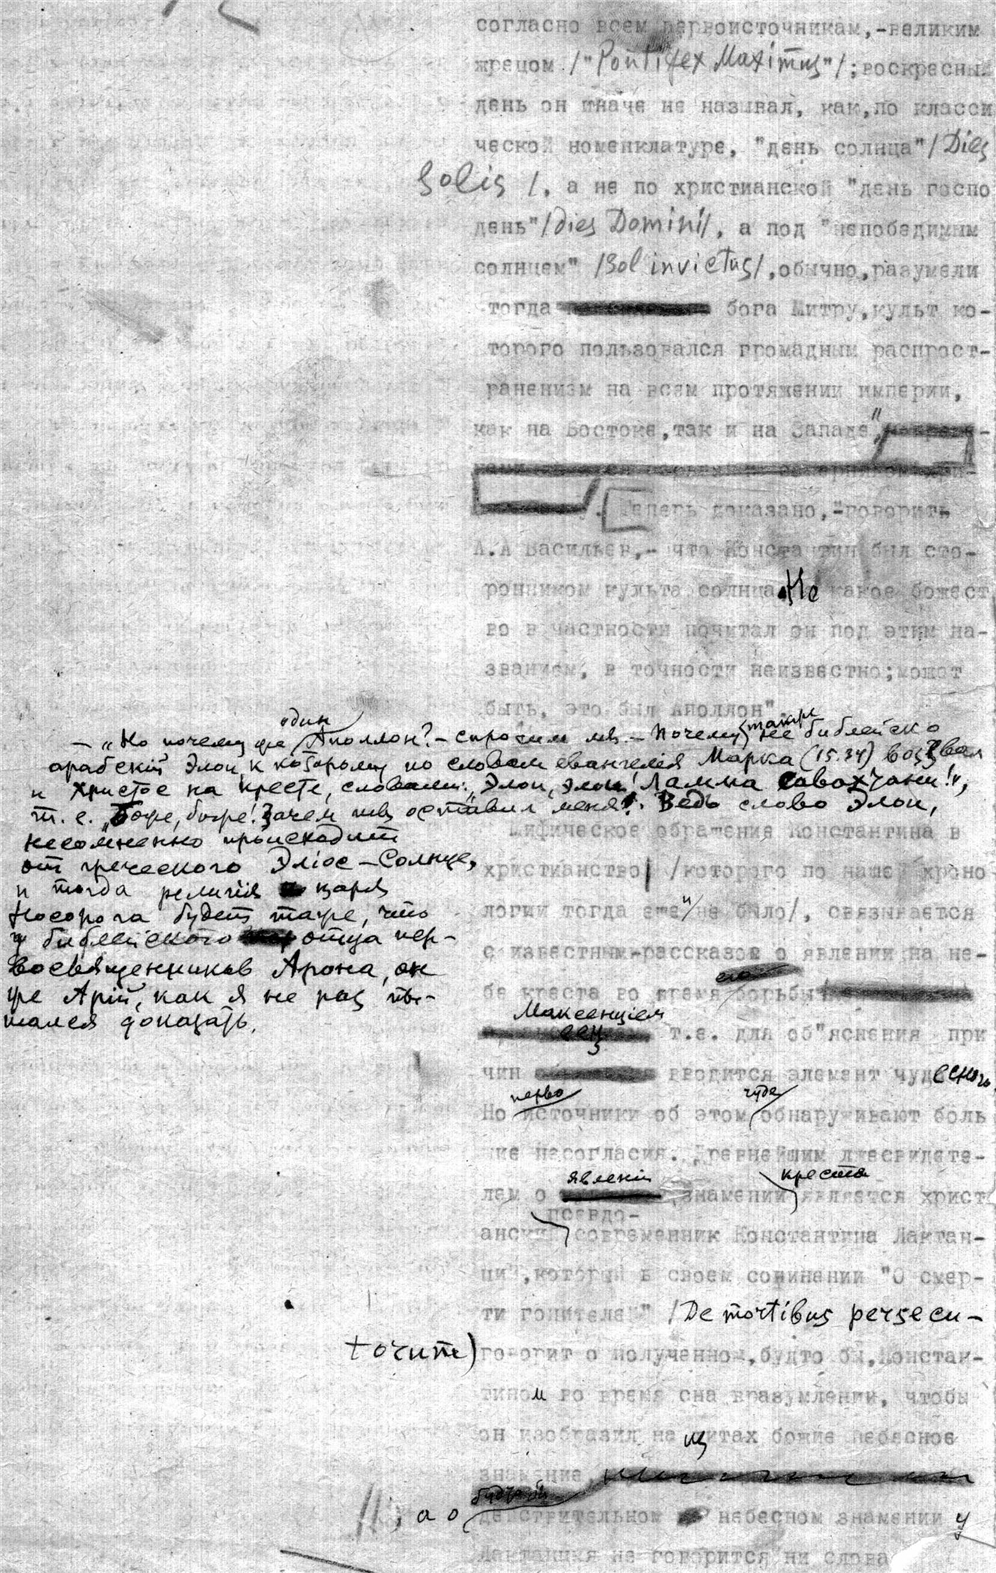 согласно всем первоисточникам,-великим
жрецом /"Pontifex Maximus"/;воскресный
день он иначе не называл, как,по класси
ческой номенклатуре, "день солнца"/Dies
Solis /, а не по христианской "день госпо
день"/dies Domini/, а под "непобедимым
солнцем" /Sol invictus/,обычно,разумели
тогда бога Митру,культ ко-
торого пользовался громадным распрост-
ранением на всем протяжении империи,
как на Востоке,так и на Западе,
"Теперь доказано,-говорит
А.А Васильев,- что Константин был сто-
ронником культа солнца. Но какое божест
во в частности почитал он под этим на-
званием, в точности неизвестно;может
быть, это был Аполлон"
— "Но почему же один Аполлон?—спросим мы.— Почему также не библейско
арабский Элои, к которому по словам евангелия Марка (15.34) воззвал
и Христос на кресте, словами: "Элои, элои! Ламма савахчани!",
т. е. "Боже, боже! Зачем ты оставил меня?" Ведь слово Элои,
несомненно происходит
от греческого Эліос—Солнце,
и тогда религия царя
Носорога будет та же, что
у библейского отца пер-
восвященников Арона, он
же Арий, как я не раз пы-
тался доказать.
Мифическое обращение Константина в
христианство /которого по нашей хроно
логии тогда еще и не было/, связывается
с известным рассказом о явлении на не-
бе креста во время борьбы его с
Максенцием т.е. для об"яснения при
чин вводится элемент чудесного.
Но первоисточники об этом чуде обнаруживают боль
шие несогласия. Древнейшим лжесвидете-
лем о явлении знамении креста является христ
псевдо-
анский современник Константина Лактан-
ций,который в своем сочинении "О смер-
ти гонителей" /De mortibus persecu-
torum) говорит о полученном,будто бы,Констан-
тином во время сна вразумлении, чтобы
он изобразил на щитах божие небесное
знамение
, а о действительном небесном знамении у
Лактанция не говорится ни слова